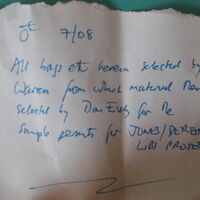 7/08
All bags etc herein selected by
Warren from which material
selected by Dan Eisely for the
Sample permits for JONES/DEREK
LIBS PROSE